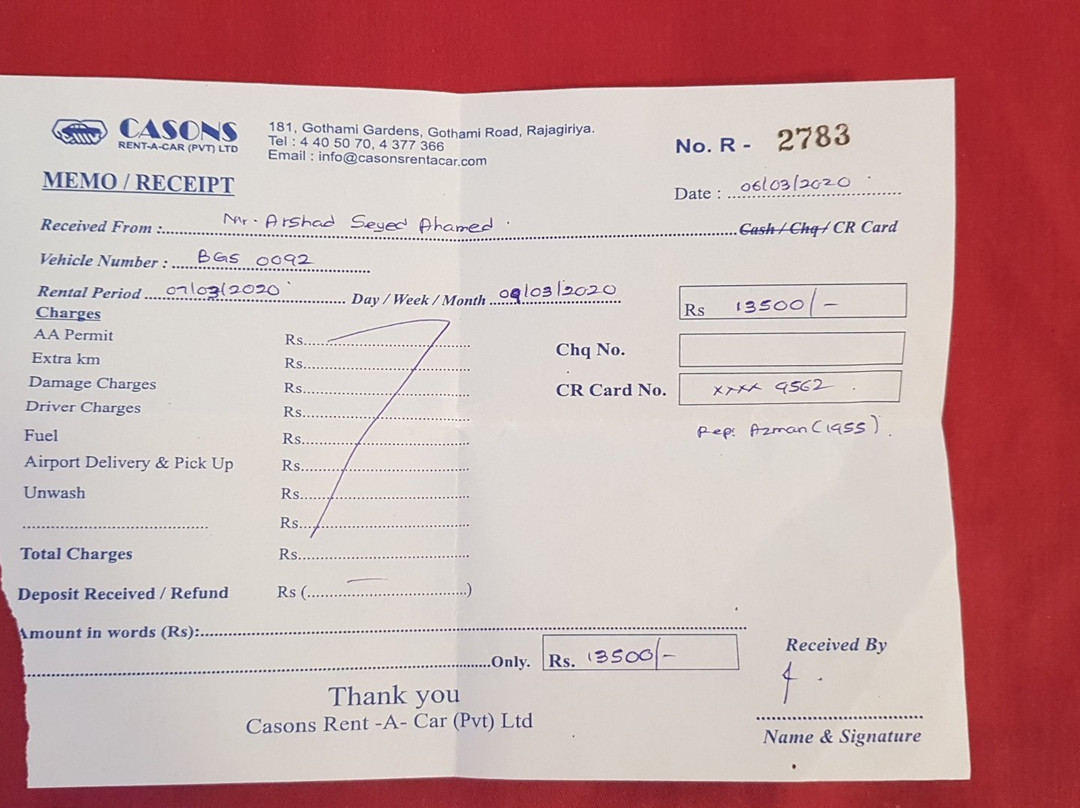 CASONS
RENT-A-CAR (PVT) LTD
181, Gothami Gardens, Gothami Road, Rajagiriya.
Tel : 4 40 50 70, 4 377 366
Email : info@casonsrentacar.com
No. R - 2783
MEMO / RECEIPT
Date : 06/03/2020
Received From : Mr. Arshad Seyed Ahamed Cash / Chq / CR Card
Vehicle Number : BGS 0092
Rental Period 07/03/2020 Day / Week / Month 09/03/2020
Rs 13500/-
Charges
AA Permit Rs
Extra km Rs
Chq No.
Damage Charges Rs
CR Card No. xxxx 9562
Driver Charges Rs
Rep: Azman (1955).
Fuel Rs
Airport Delivery & Pick Up Rs
Unwash Rs
Rs
Total Charges Rs
Deposit Received / Refund Rs ( )
Amount in words (Rs):
Only. Rs. 13500/-
Received By
Thank you
Casons Rent -A- Car (Pvt) Ltd
Name & Signature